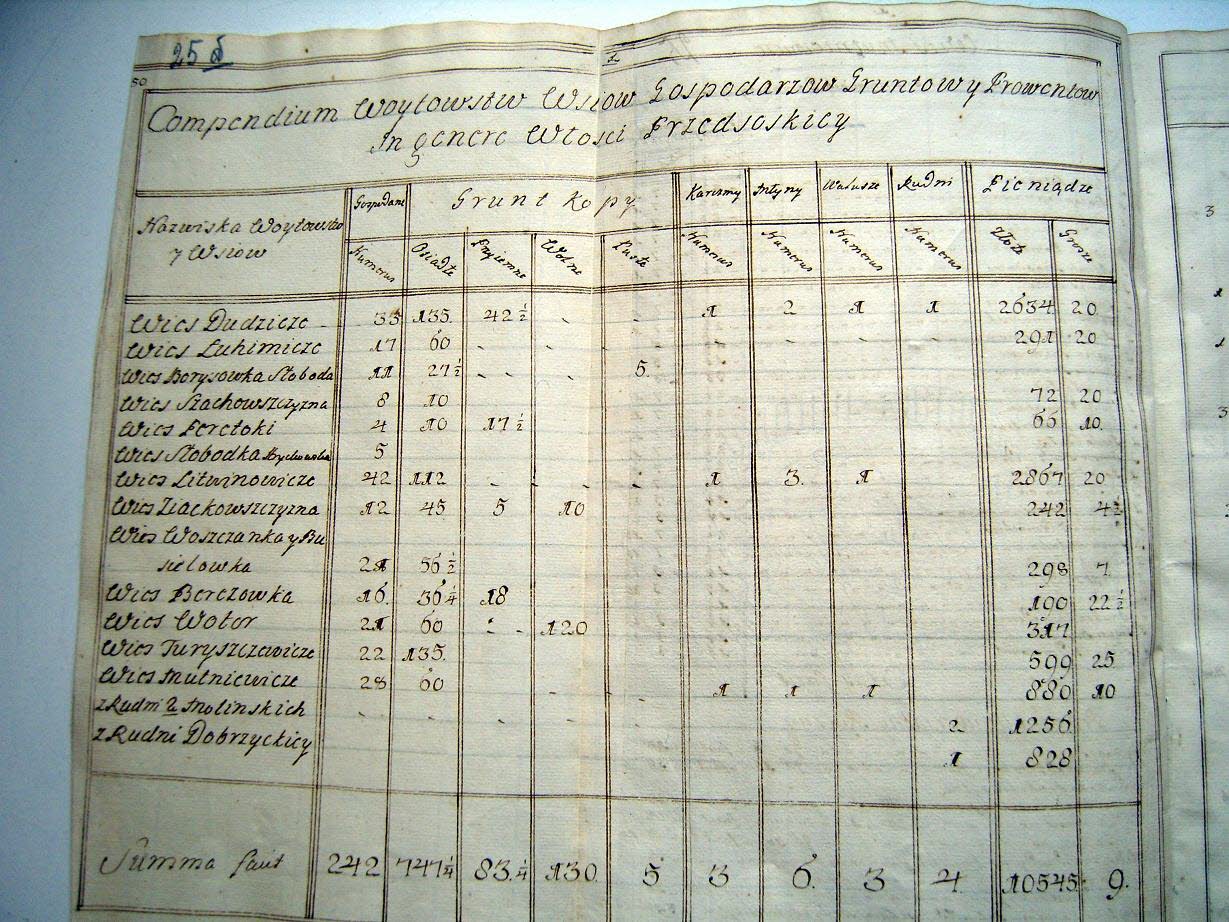 25
50
2
Compendium Woytowstw Wsiow Gospodarzow Gruntow y Prowentow
In genere Włosci Przedsoskiey
Nazwiska Woytowstw y Wsiow | Gospodarze | Grunt Kopy | Karczmy | Młyny | Wałusze | Rudni | Pieniądze
Numerus | Osiadłe | Przyiemne | Wolne | Puste | Numerus | Numerus | Numerus | Numerus | Złote | Grosze
Wies Dudzicze 33 135. 42 1/2 - - 1 2 1 1 2634 20
Wies Luhinicze 17 60 - - - - - - - 291 20
Wies Borysowka Słoboda 11 27 1/2 - - - 5.
Wies Szachowszczyzna 8 10 72 20
Wies Peretoki 4 10 17 1/2 66 10.
Wies Słobodka 5
Wies Litwinowicze 42 112 - - - 1 3. 1 2867 20
Wies Ziackowszczyzna 12 45 5 10 242 4 1/2
Wies Woszczanka y Bu
sielowka 21 56 1/2 298 7
Wies Berezowka 16. 36 1/4 18 190 22 1/2
Wies Woter 21 60 - - 120 317
Wies Turyszczewicze 22 135. 599 25
Wies Mutniewicze 28 60 - - 1 1 1 880 10
z Rudni 2 Molinskich - - - - - - - - 2 1256
z Rudni Dobrzyckiey 1 828
Summa facit 242 747 1/4 83. 1/4 130. 5 3 6. 3 4 10545 9.